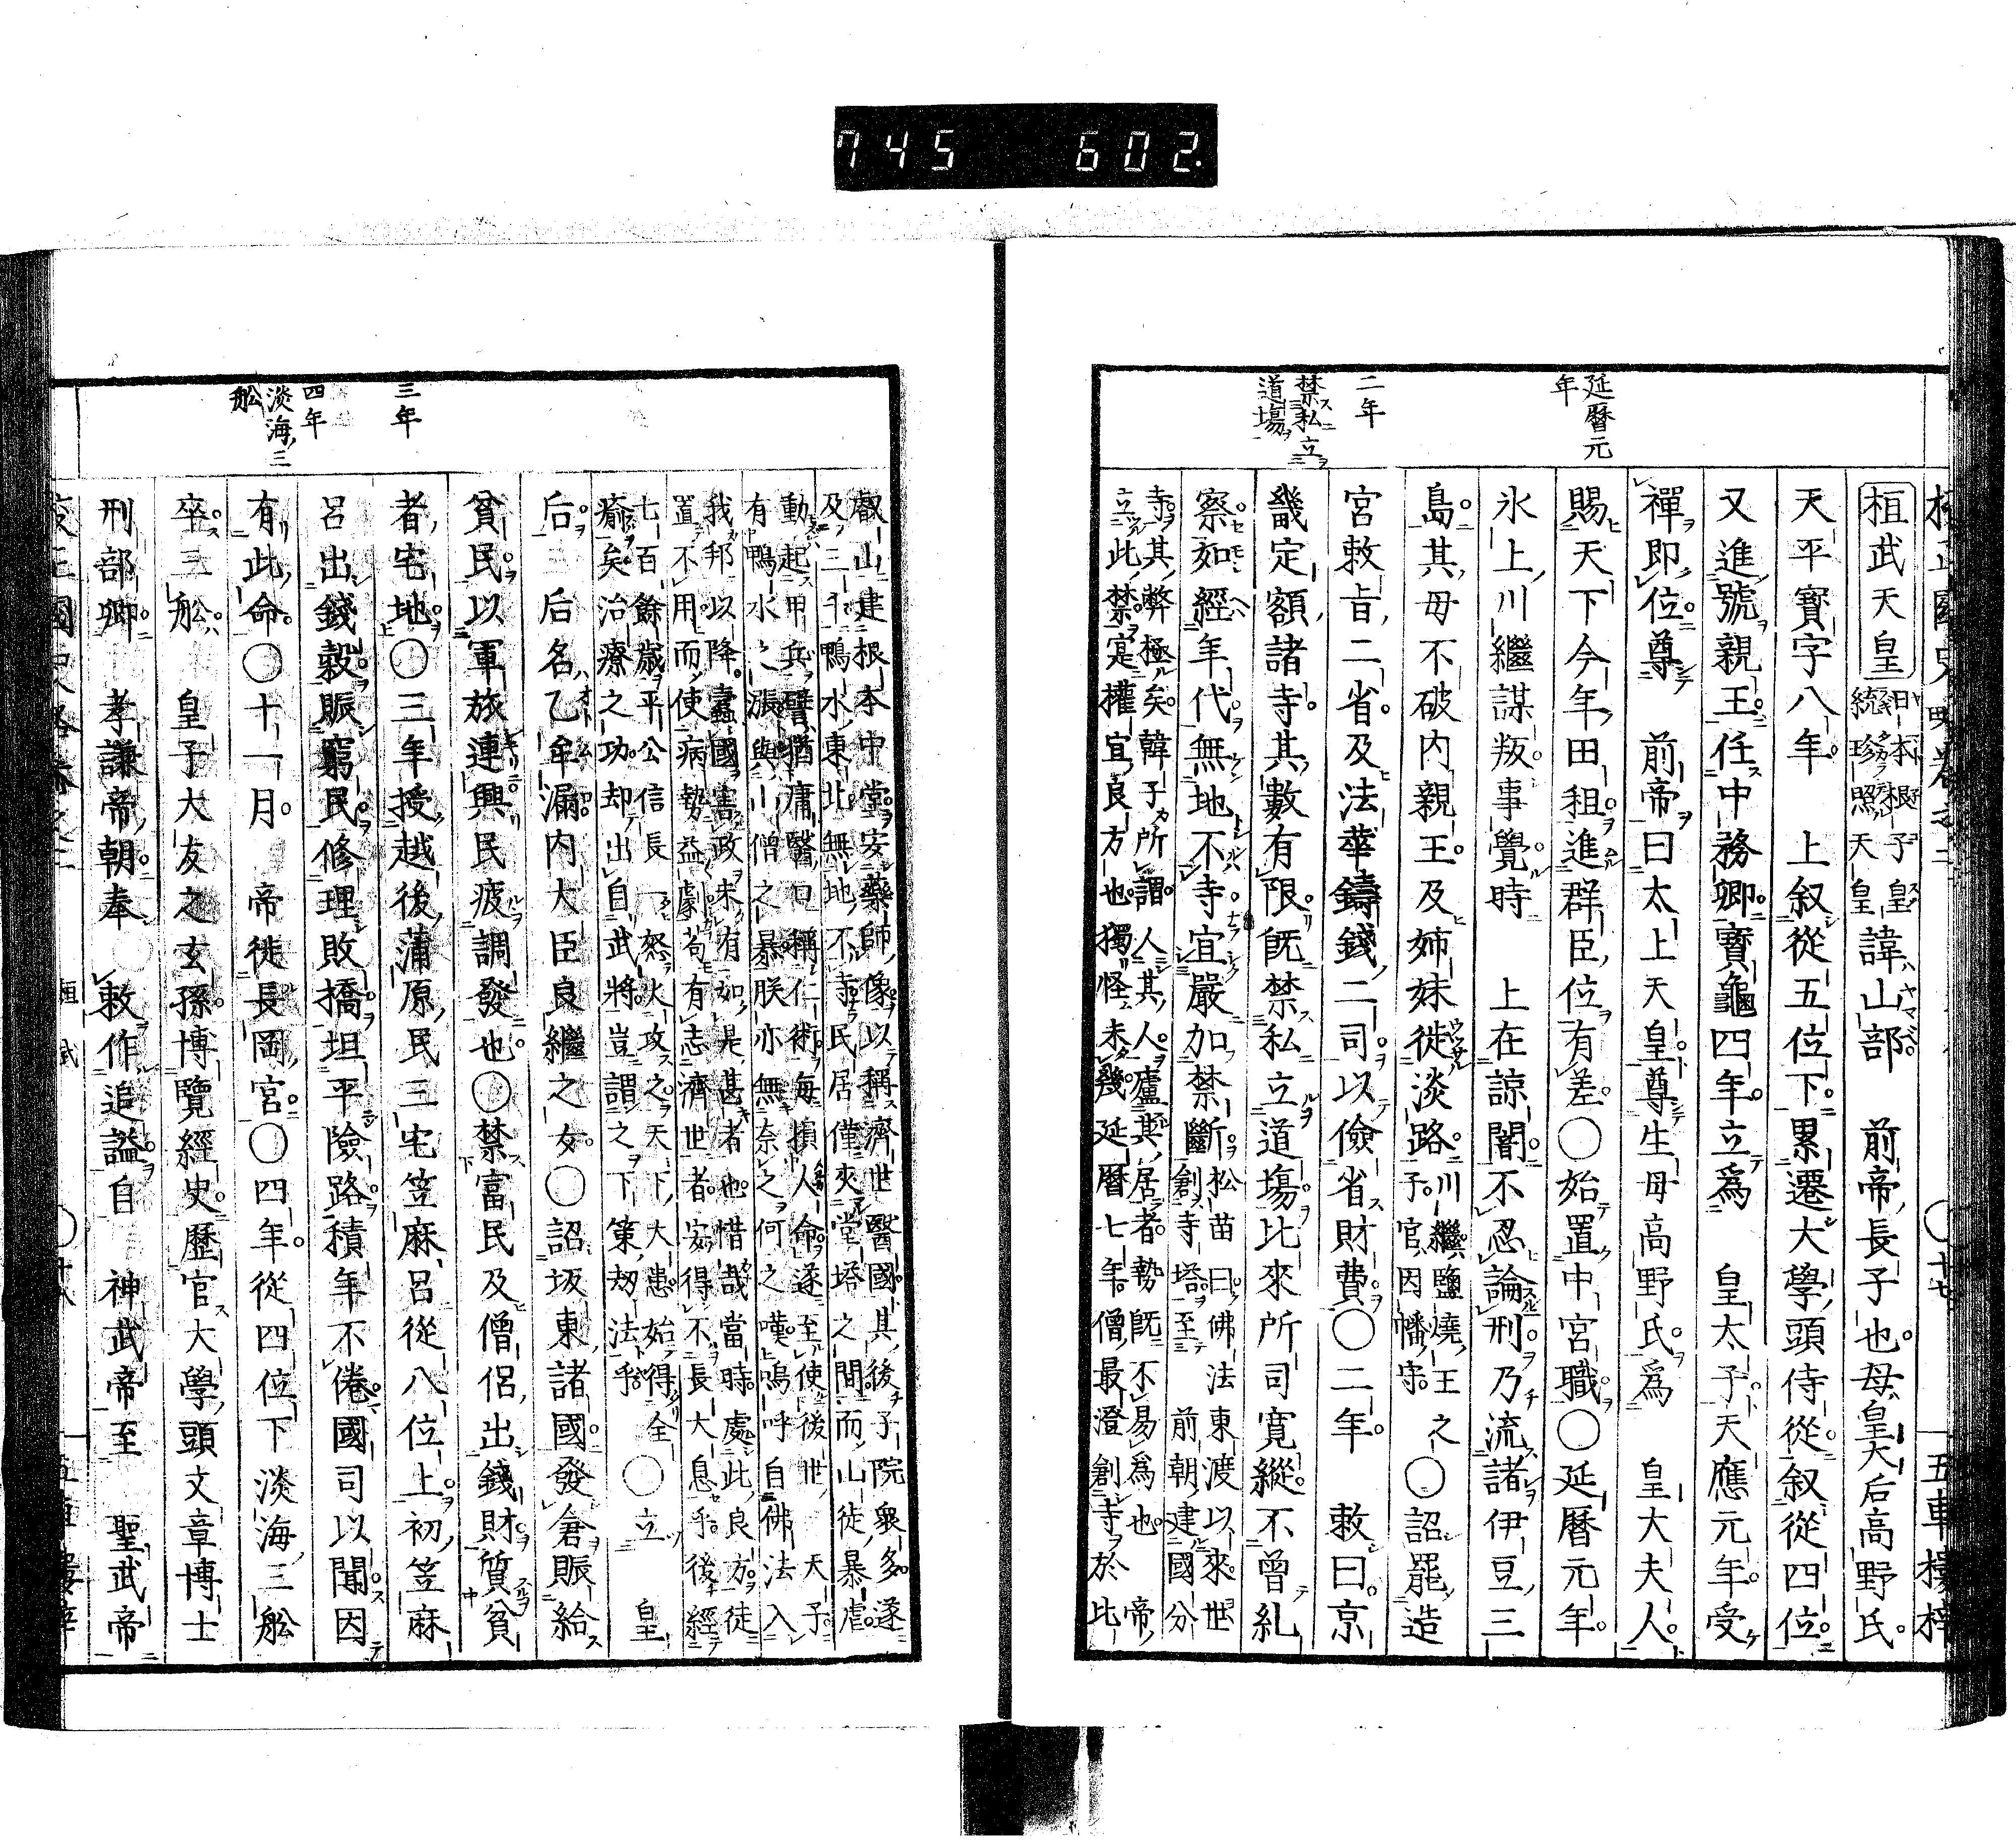 745 602.
延暦元
年
二年
禁私立
道場
桓武天皇 日本根子皇
統珍照天皇 諱山部 前帝長子也母皇大后高野氏
天平寳字八年 上叙從五位下累遷大學頭侍從叙從四位
又進號親王任中務卿寳龜四年立爲 皇太子天應元年受
禪即位尊 前帝曰太上天皇尊生母高野氏爲 皇大夫人
賜天下今年田租進群臣位有差〇始置中宮職〇延暦元年
氷上川繼謀叛事覺時 上在諒闇不忍論刑乃流諸伊豆三
島其母不破内親王及姉妹徙淡路 川繼鹽燒王之
子官因幡守 〇詔罷造
宮敕旨二省及法華鑄錢二司以儉省財費〇二年 敕曰京
畿定額諸寺其數有限既禁私立道場比來所司寛縱不曾糺
察如經年代無地不寺宜嚴加禁斷 松苗曰佛法東渡以來世
創寺塔至 前朝建國分
寺其弊極矣韓子所謂人其人廬其居者勢既不易爲也 帝
立此禁寔權宜良方也獨怪未幾延暦七年僧最澄創寺於比
三年
四年
淡海三
舩
叡山建根本中堂安藥師像以稱濟世醫國其後子院衆多遂
及三千鴨水東北無地不寺民居僅夾堂塔之間而山徒暴虐
動起甲兵譬猶庸醫口稱仁術毎損人命遂至使後世 天子
有鴨水之漲與山僧之暴朕亦無奈之何之嘆嗚呼自佛法入
我邦以降蠧國害政未有如是甚者也惜哉當時處此良方徒
置不用而使病勢益劇苟有志濟世者安得不長大息乎後經
七百餘歳平公信長一怒火攻之天下大患始得全
瘉矣治療之功却出自武將豈謂之下策刼法乎 〇立 皇
后 后名乙牟漏内大臣良繼之女〇詔坂東諸國發倉賑給
貧民以軍旅連興民疲調發也〇禁富民及僧侶出錢財質貧
者宅地〇三年授越後蒲原民三宅笠麻呂從八位上初笠麻
呂出錢穀賑窮民修理敗橋坦平險路積年不倦國司以聞因
有此命〇十一月 帝徙長岡宮〇四年從四位下淡海三舩
卒三舩 皇子大友之玄孫博覽經史歷官大學頭文章博士
刑部卿 孝謙帝朝奉 敕作追謚自 神武帝至 聖武帝